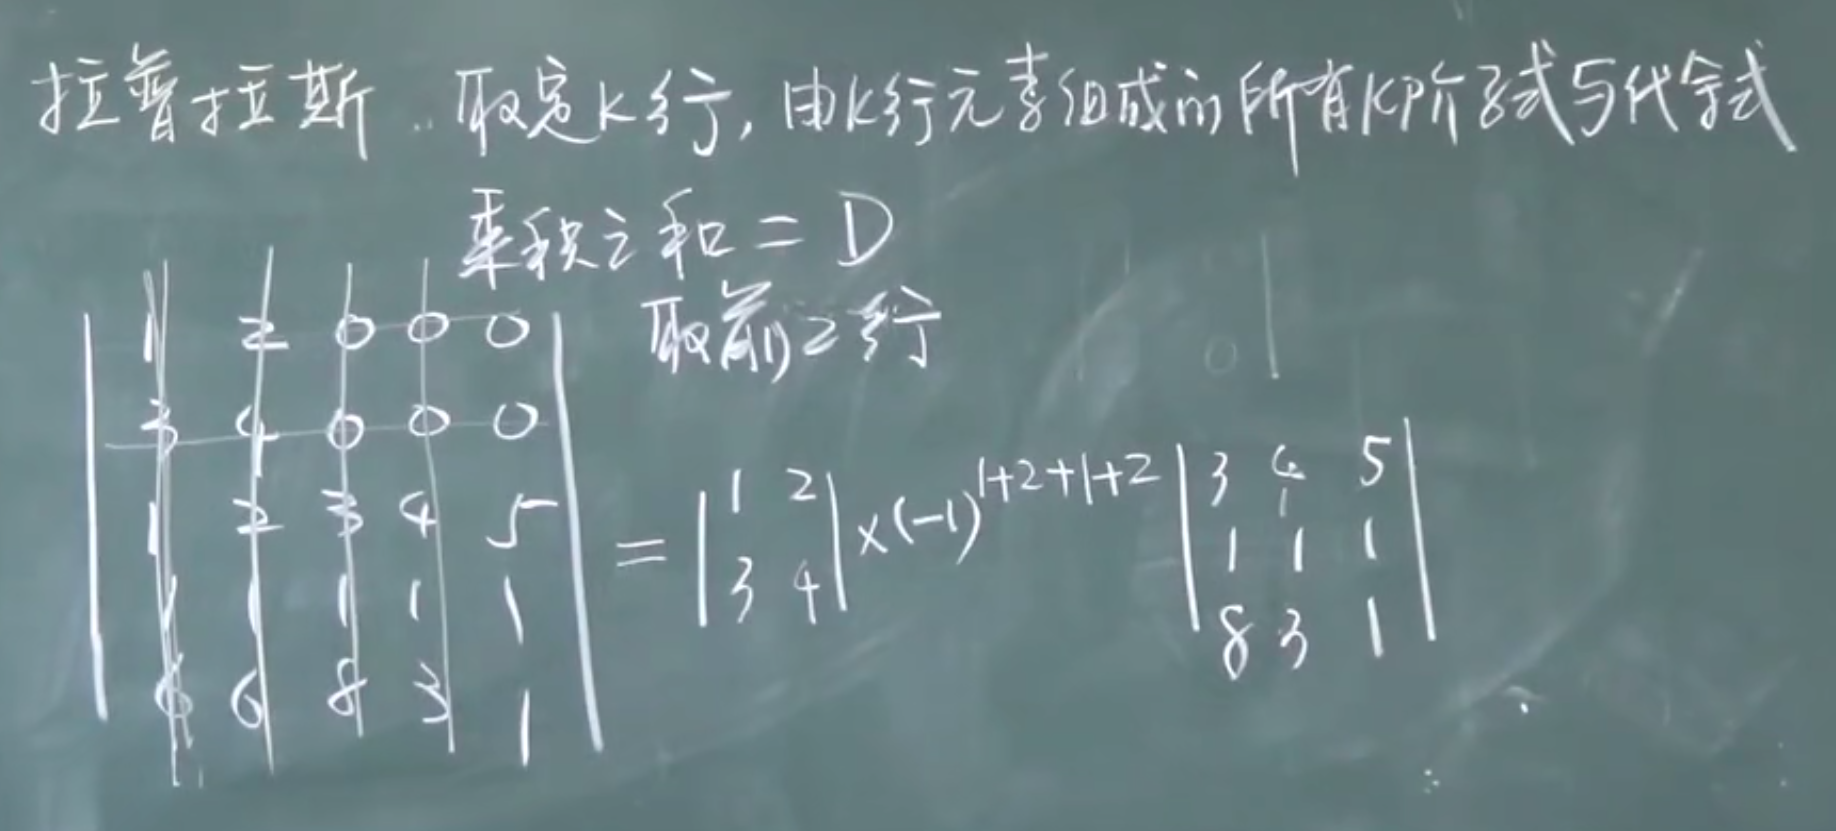 拉普拉斯．取定K行，由K行元素组成的所有K阶子式与代余式
乘积之和 = D
取前2行
1 2 0 0 0
3 4 0 0 0
1 2 3 4 5
1 1 1 1 1
6 6 8 3 1
= | 1 2 | ×(-1)^{1+2+1+2} | 3 4 5 |
| 3 4 | | 1 1 1 |
| 8 3 1 |